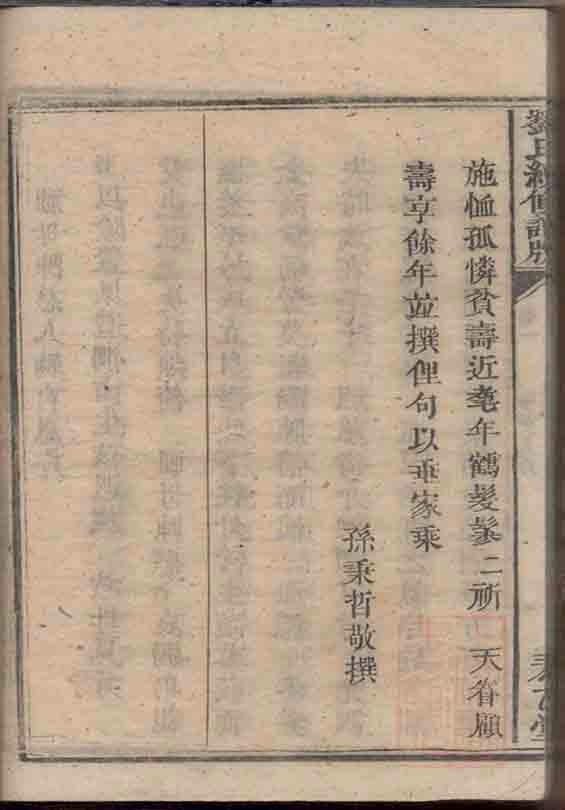 施恤孤憐貧壽近耄年鶴髮鬖二祈　天眷顧
壽享餘年並撰俚句以垂家乘
孫秉哲敬撰